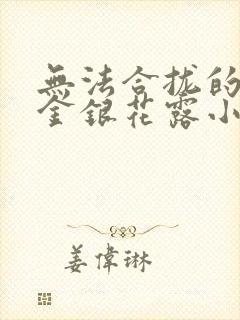 無法合拢的
金銀花露小
姜偉琳